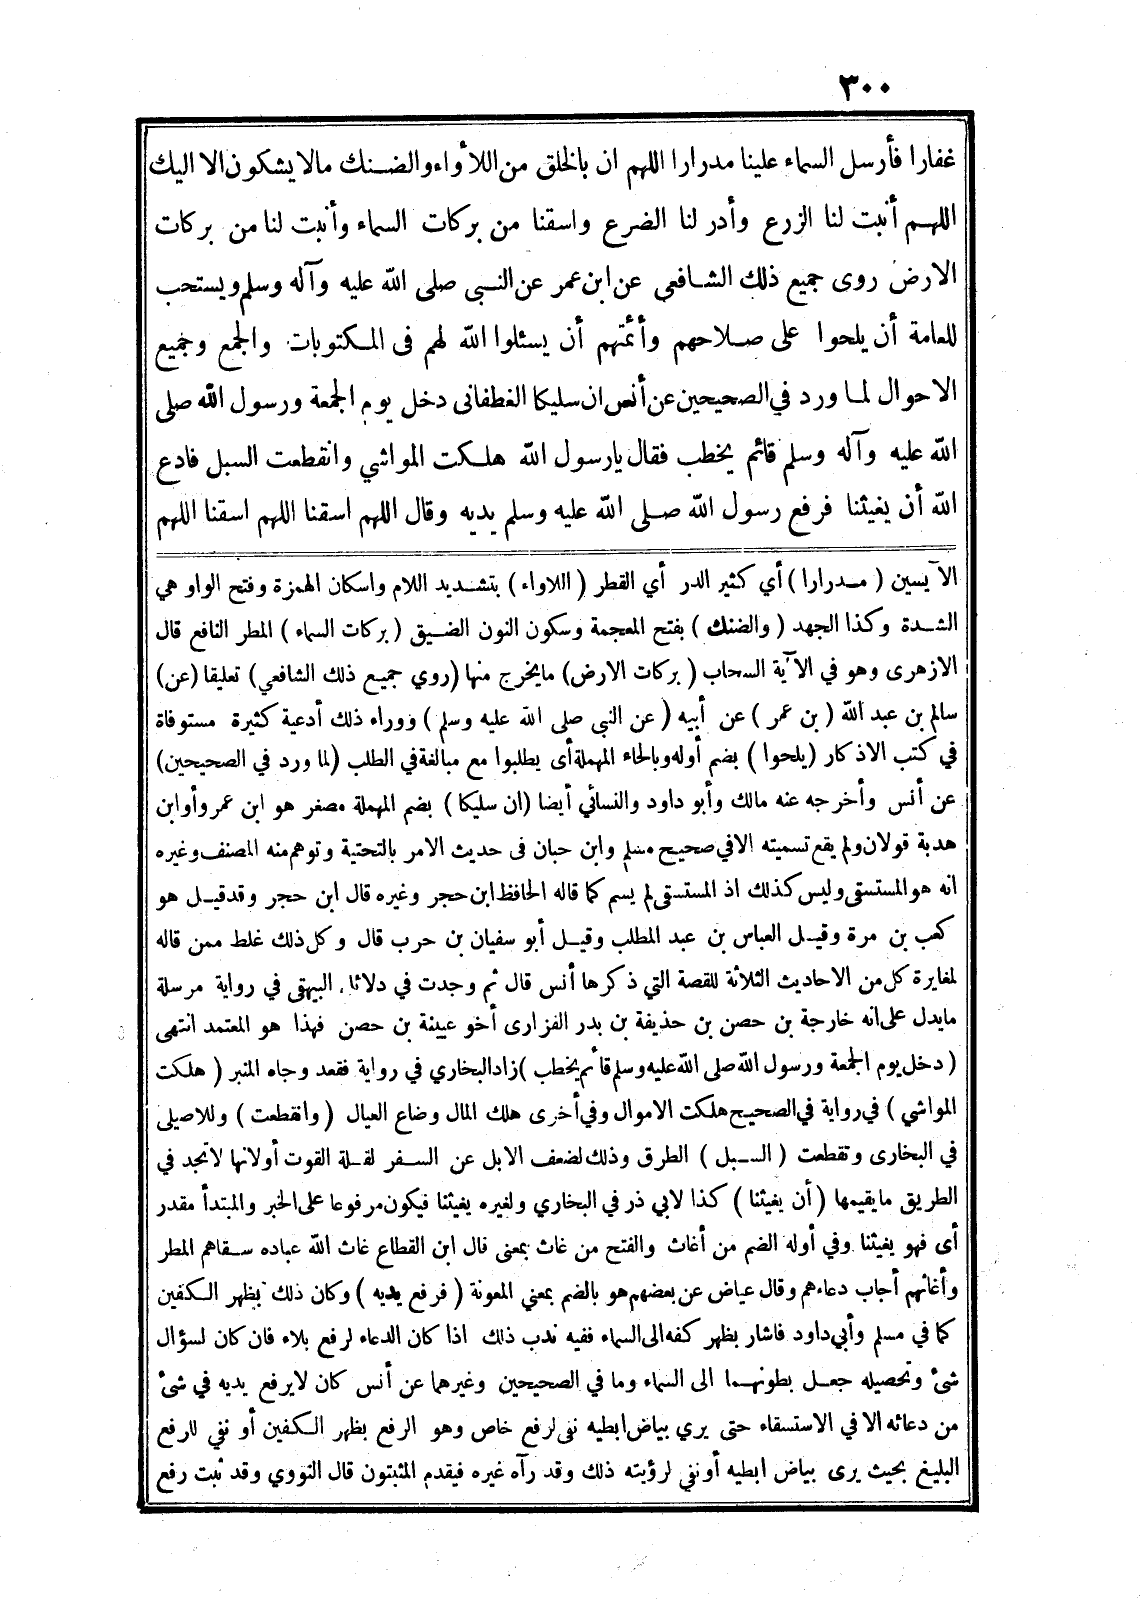 ٣٠٠
غفارا فأرسل السماء علينا مدرارا اللهم ان بالخلق من اللأواء والضنك مالا يشكون الا اليك
اللهم أنبت لنا الزرع وأدر لنا الضرع واسقنا من بركات السماء وأنبت لنا من بركات
الارض روى جميع ذلك الشافعي عن ابن عمر عن النبي صلى الله عليه وآله وسلم ويستحب
للعامة أن يلحوا على صلاحهم وأئمتهم أن يسئلوا الله لهم فى المكتوبات والجمع وجميع
الاحوال لما ورد في الصحيحين عن أنس ان سليكا الغطفانى دخل يوم الجمعة ورسول الله صلى
الله عليه وآله وسلم قائم يخطب فقال يارسول الله هلكت المواشي وانقطعت السبل فادع
الله أن يغيثنا فرفع رسول الله صلى الله عليه وسلم يديه وقال اللهم اسقنا اللهم اسقنا اللهم
الآيسين ( مدرارا ) أي كثير الدر أي القطر ( اللاواء ) بتشديد اللام واسكان الهمزة وفتح الواو هي
الشدة وكذا الجهد ( والضنك ) بفتح المعجمة وسكون النون الضيق ( بركات السماء ) المطر النافع قال
الازهرى وهو في الآية السحاب ( بركات الارض) مايخرج منها (روي جميع ذلك الشافعي) تعليقا (عن)
سالم بن عبد الله ( بن عمر ) عن أبيه ( عن النبي صلى الله عليه وسلم ) ووراء ذلك أدعية كثيرة مستوفاة
في كتب الاذكار (يلحوا ) بضم أوله وبالحاء المهملة أى يطلبوا مع مبالغة في الطلب (لما ورد في الصحيحين)
عن أنس وأخرجه عنه مالك وأبو داود والنسائي أيضا (ان سليكا ) بضم المهملة مصغر هو ابن عمر وأو ابن
هدبة قولان ولم يقع تسميته الا في صحيح مسلم وابن حبان فى حديث الامر بالتحتية وتوهم منه المصنف وغيره
انه هو المستسقى وليس كذلك اذ المستسقى لم يسم كما قاله الحافظ ابن حجر وغيره قال ابن حجر وقد قيل هو
كعب بن مرة وقيل العباس بن عبد المطلب وقيل أبو سفيان بن حرب قال وكل ذلك غلط ممن قاله
لمغايرة كل من الاحاديث الثلاثة للقصة التي ذكرها أنس قال ثم وجدت في دلائل البيهقى في رواية مرسلة
مايدل على انه خارجة بن حصن بن حذيفة بن بدر الفزارى أخو عيينة بن حصن فهذا هو المعتمد انتهى
( دخل يوم الجمعة ورسول الله صلى الله عليه وسلم قائم يخطب ) زاد البخاري في رواية فقعد وجاه المنبر ( هلكت
المواشي ) في رواية في الصحيح هلكت الاموال وفي أخرى هلك المال وضاع العيال ( وانقطعت ) وللاصيلى
في البخارى وتقطعت ( السبل ) الطرق وذلك لضعف الابل عن السفر لقلة القوت أولانها لا تجد في
الطريق ما يقيمها ( أن يغيثنا ) كذا لابي ذر في البخاري ولغيره يغيثنا فيكون مرفوعا على الخبر والمبتدأ مقدر
أى فهو يغيثنا وفي أوله الضم من أغاث والفتح من غاث بمعنى قال ابن القطاع غاث الله عباده سقاهم المطر
وأغاثهم أجاب دعاءهم وقال عياض عن بعضهم هو بالضم بمعني المعونة ( فرفع يديه ) وكان ذلك بظهر الكفين
كما في مسلم وأبي داود فاشار بظهر كفه الى السماء ففيه ندب ذلك اذا كان الدعاء لرفع بلاء فان كان لسؤال
شئ وتحصيله جعل بطونهما الى السماء وما في الصحيحين وغيرهما عن أنس كان لايرفع يديه في شئ
من دعائه الا في الاستسقاء حتى يري بياض ابطيه نفى لرفع خاص وهو الرفع بظهر الكفين أو نفي للرفع
البليغ بحيث يرى بياض ابطيه أو نفي لرؤيته ذلك وقد رآه غيره فيقدم المثبتون قال النووي وقد ثبت رفع